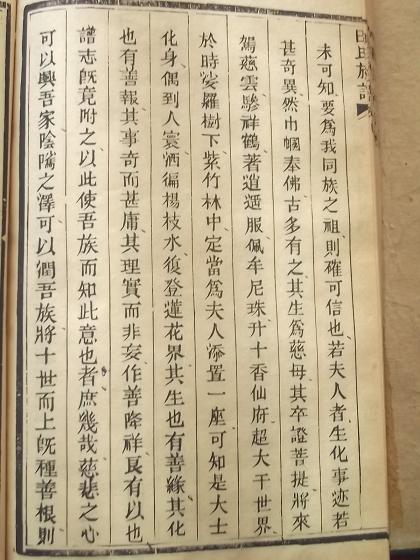 未可知要爲我同族之祖則確可信也若夫人者生化事迹若
甚奇異然巾幗奉佛古多有之其生爲慈母其卒證菩提將來
駕慈雲驂祥鶴著逍遥服佩牟尼珠升十香仙府超大千世界
於時娑羅樹下紫竹林中定當爲夫人添置一座可知是大士
化身偶到人寰洒徧楊枝水復登蓮花界其生也有善緣其化
也有善報其事奇而甚庸其理實而非妄作善降祥良有以也
譜志旣竟附之以此使吾族而知此意也者庶幾哉慈悲之心
可以興吾家陰騭之澤可以濶吾族將十世而上旣種善根則